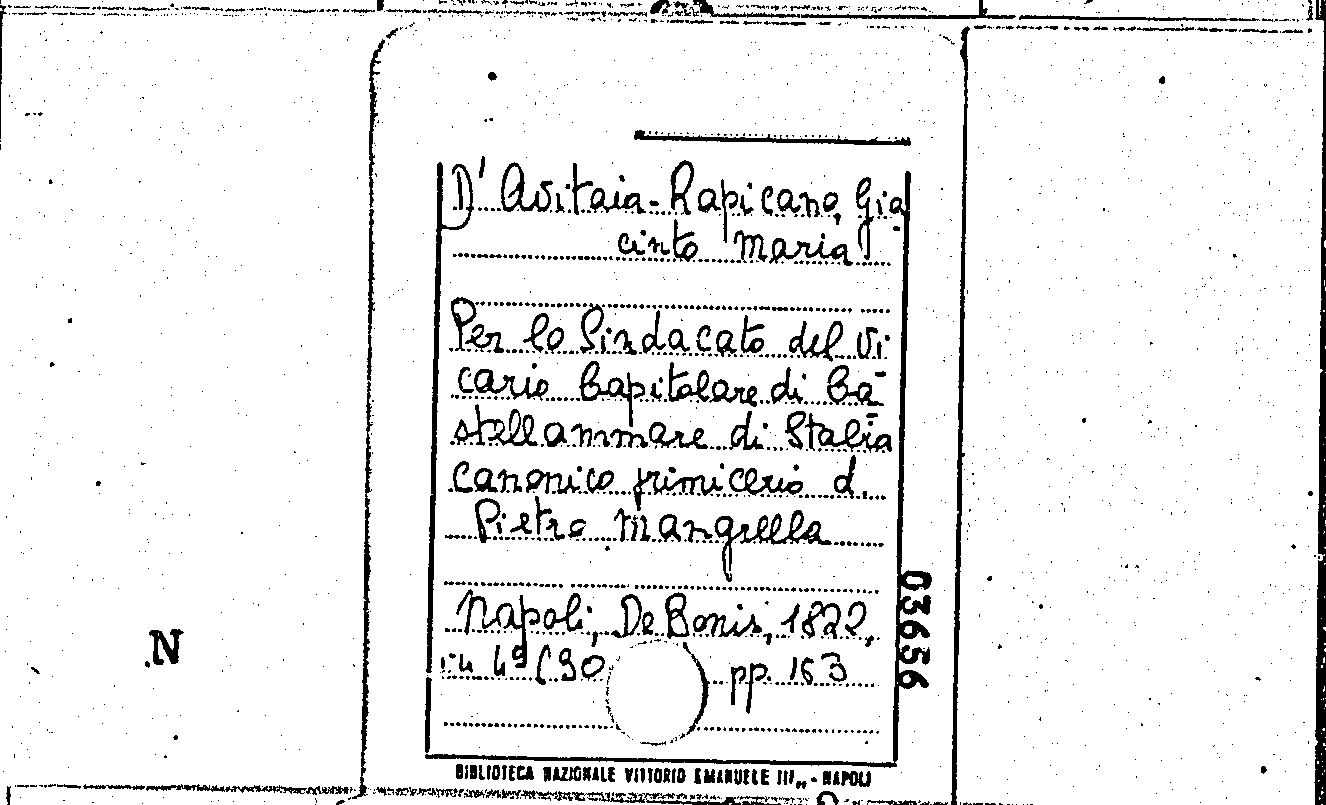 D' Avitaia-Rapicano, Gia
cinto Maria
Per lo Sindacato del Vi
cario Capitolare di Ca
stellammare di Stabia
canonico primicerio d.
Pietro Mangrella
Napoli, De Bonis, 1822,
in 4º (90 pp. 163
BIBLIOTECA NAZIONALE VITTORIO EMANUELE III„ - NAPOLI
03656
N